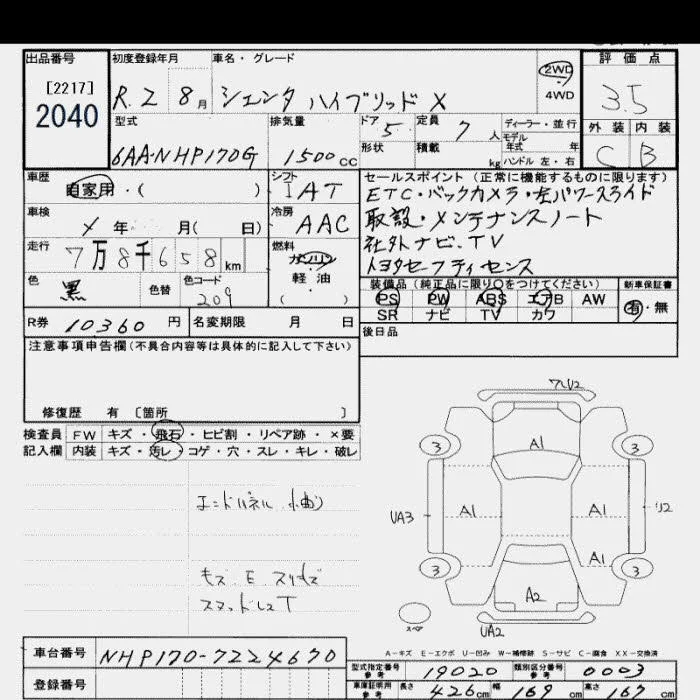 出品番号 初度登録年月 車名・グレード 評価点
[2217] R.2 8月 シエンタ ハイブリッド X 2WD 4WD 3.5
2040
型式 排気量 ドア 5 定員 7人 ディーラー・並行 外装 内装
6AA-NHP170G 1500cc 形状 積載 kg モデル年式 年 ハンドル 左・右 C B
車歴 自家用・( ) シフト IAT
セールスポイント(正常に機能するものに限ります)
ETC・バックカメラ・左パワースライド
車検 メ 年 月( 日) 冷房 AAC
取説・メンテナンスノート
走行 7万8千658km 燃料 ガソリン 軽油 ( )
社外ナビ、TV
トヨタセーフティセンス
色 黒 色替 色コード 209
装備品(純正品に限り○をつけてください) 新車保証書
PS PW ABS エアB AW 有・無
SR ナビ TV カワ
R券 10360円 名変期限 月 日
後日品
注意事項申告欄(不具合内容等は具体的に記入して下さい)
修復歴 有 〔箇所 〕
検査員 FW キズ・飛石・ヒビ割・リペア跡・×要
記入欄 内装 キズ・汚レ・コゲ・穴・スレ・キレ・破レ
エンドパネル 小曲
スマッドレスT
U2
3 A1 3
UA3 A1 A1 U2
A1
3 A2 3
スペア UA2
A-キズ E-エクボ U-凹み W-補修跡 S-サビ C-腐食 XX-交換済
車台番号 NHP170-7224670
型式指定番号 参考 19020 類別区分番号 参考 0003
登録番号
車庫証明用 参考 長さ 426cm 幅 169cm 高さ 167cm